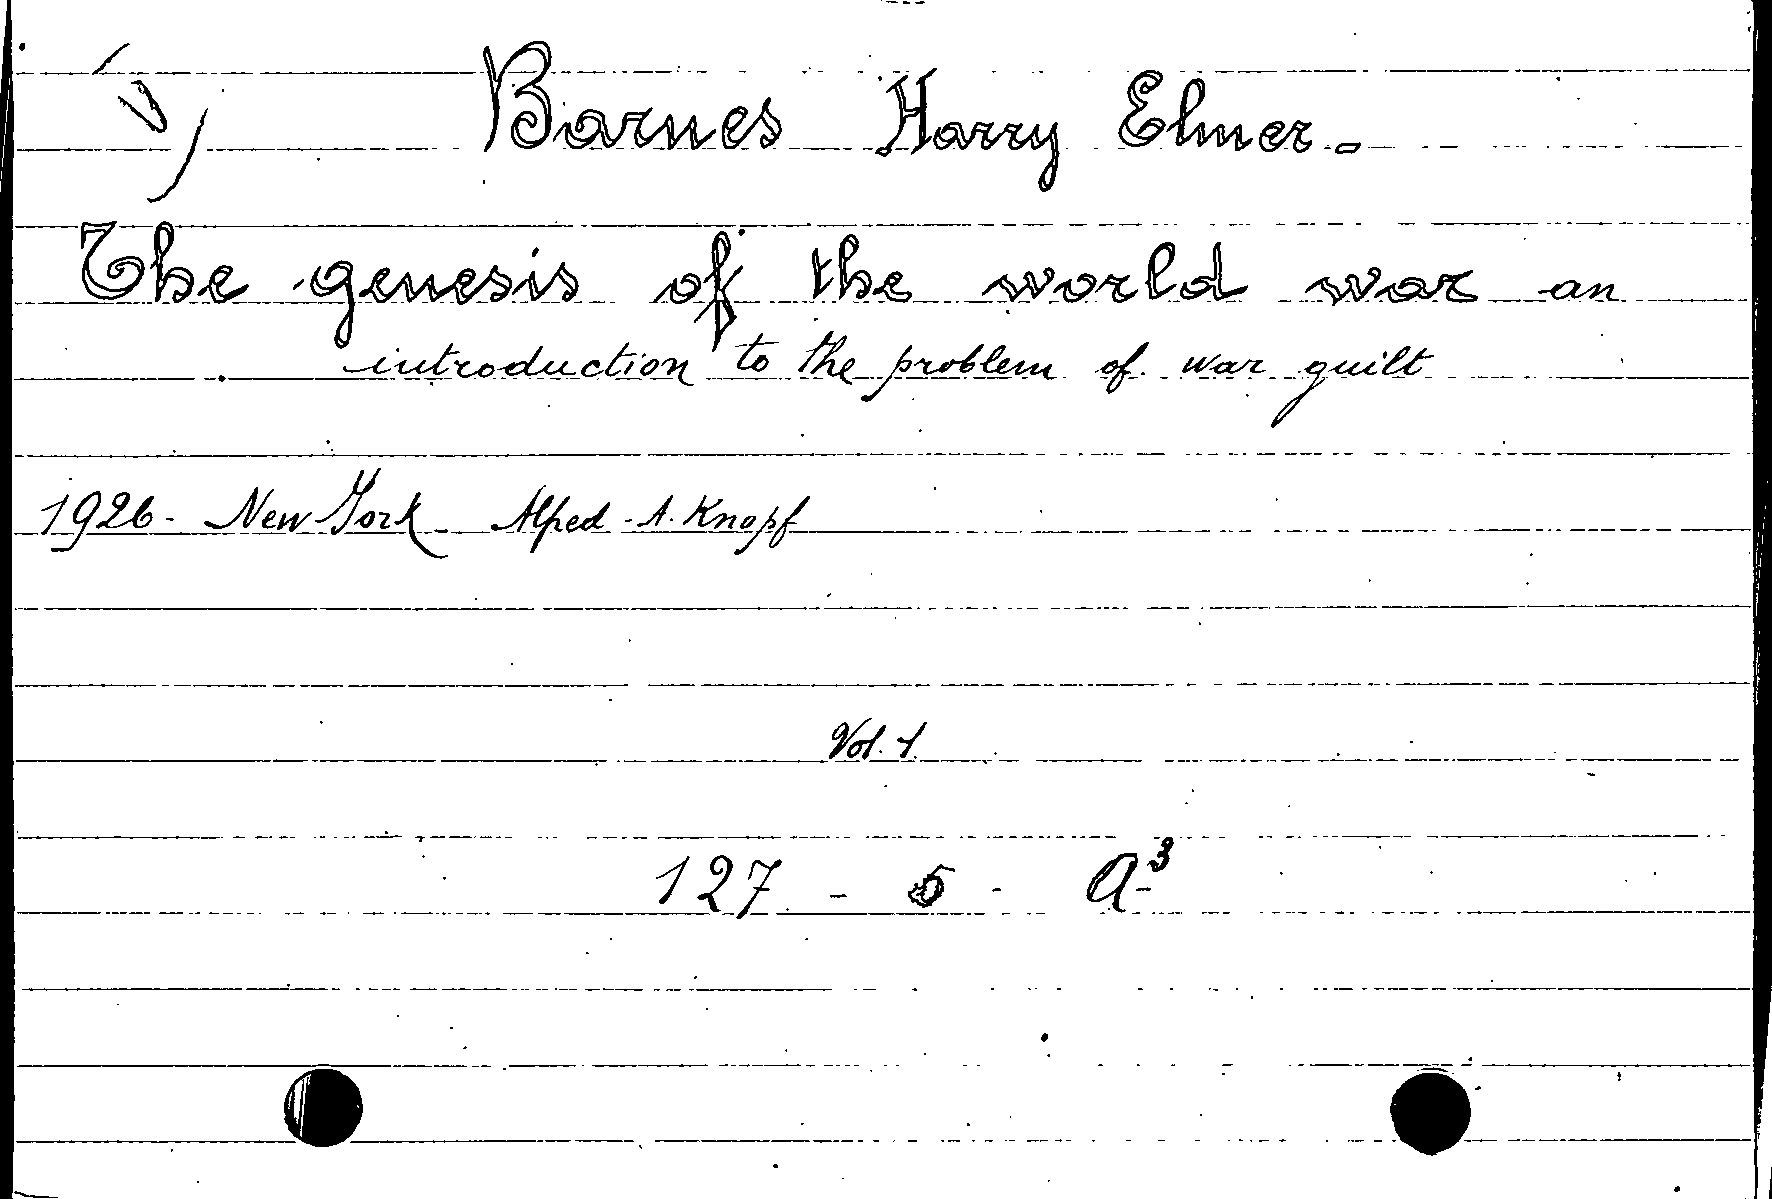 Barnes Harry Elmer.-
The genesis of the world war an
introduction to the problem of war guilt
1926- New-York- Alfred-A. Knopf
Vol. 1.
127 - 5 - A³